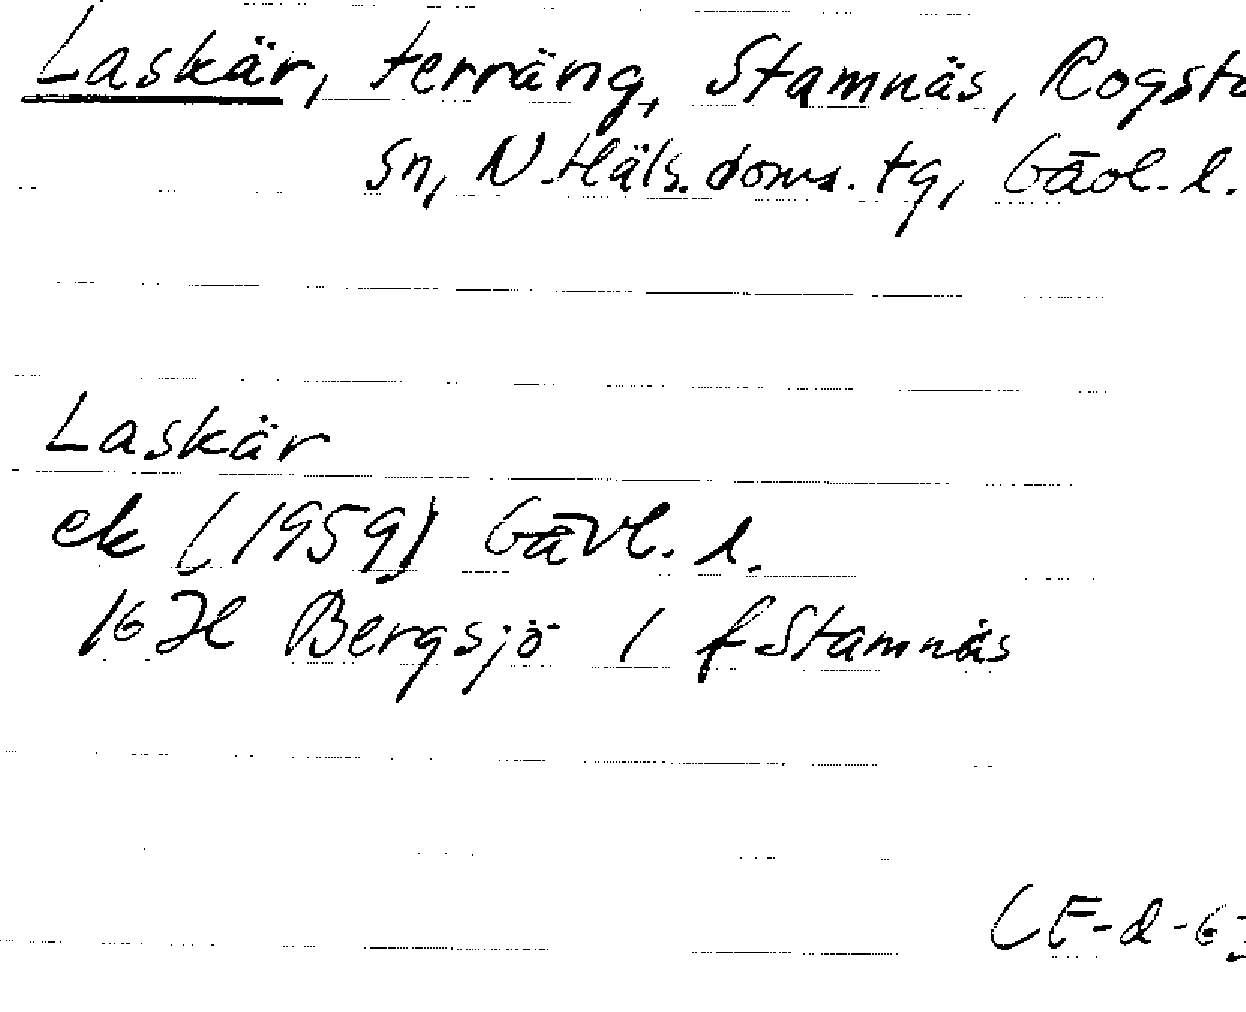 Laskär, terräng, Stamnäs, Rogsta
sn, N. Häls. doms. tg, Gävl. l.
Laskär
ek (1959) Gävl. l.
16H Bergsjö / f Stamnäs
CE-d-63